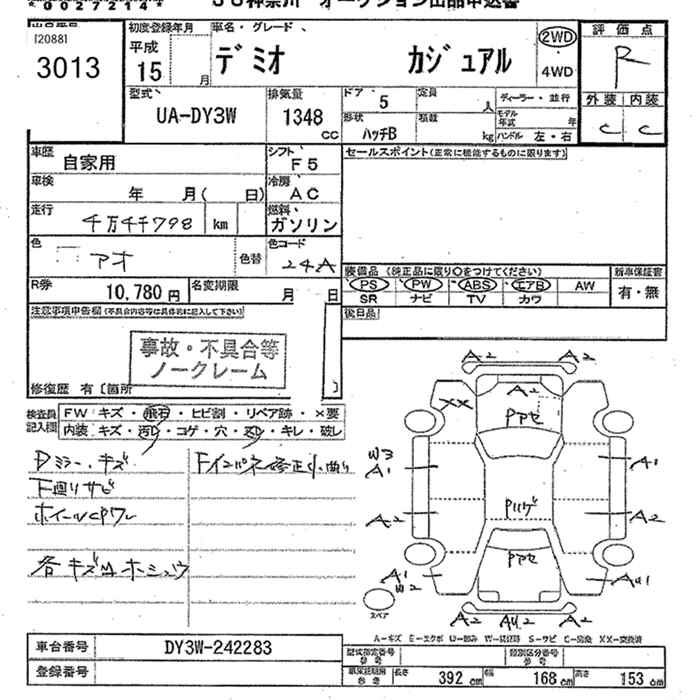 *00272144*
JU神奈川 オークション出品申込書
[2088]
3013
初度登録年月
平成
15 月
車名・グレード
デミオ カジュアル
2WD
4WD
評価点
R
外装 内装
C C
型式
UA-DY3W
排気量
1348
cc
ドア
5
定員
人
形状
ハッチB
積載
kg
ディーラー・並行
モデル年式 年
ハンドル 左・右
車歴
自家用
シフト
F5
セールスポイント(正常に機能するものに限ります)
車検
年 月( 日)
冷房
AC
走行
4万4千798 km
燃料
ガソリン
色
アオ
色替
色コード
24A
装備品 (純正品に限り○をつけてください)
PS PW ABS エアB AW
SR ナビ TV カワ
新車保証書
有・無
R券
10,780 円
名変期限
月 日
後日品
注意事項申告欄(不具合内容等は具体的に記入して下さい)
事故・不具合等
ノークレーム
修復歴 有〔箇所 〕
検査員
記入欄
FW キズ・飛石・ヒビ割・リペア跡・×要
内装 キズ・汚レ・コゲ・穴・スレ・キレ・破レ
Dミラー、キズ
F廻りサビ
ホイールCPワレ
各キズ凹ホシュウ
A2 A2
A2
XX
Pアセ
W3
A1
A1
A2
A2
Pアセ
A1
W2
A2 A2
スペア
A-キズ E-エクボ U-凹み W-補修跡 S-サビ C-腐食 XX-交換済
車台番号
DY3W-242283
登録番号
型式指定番号
参考
類別区分番号
参考
長さ
392 cm
幅
168 cm
高さ
153 cm